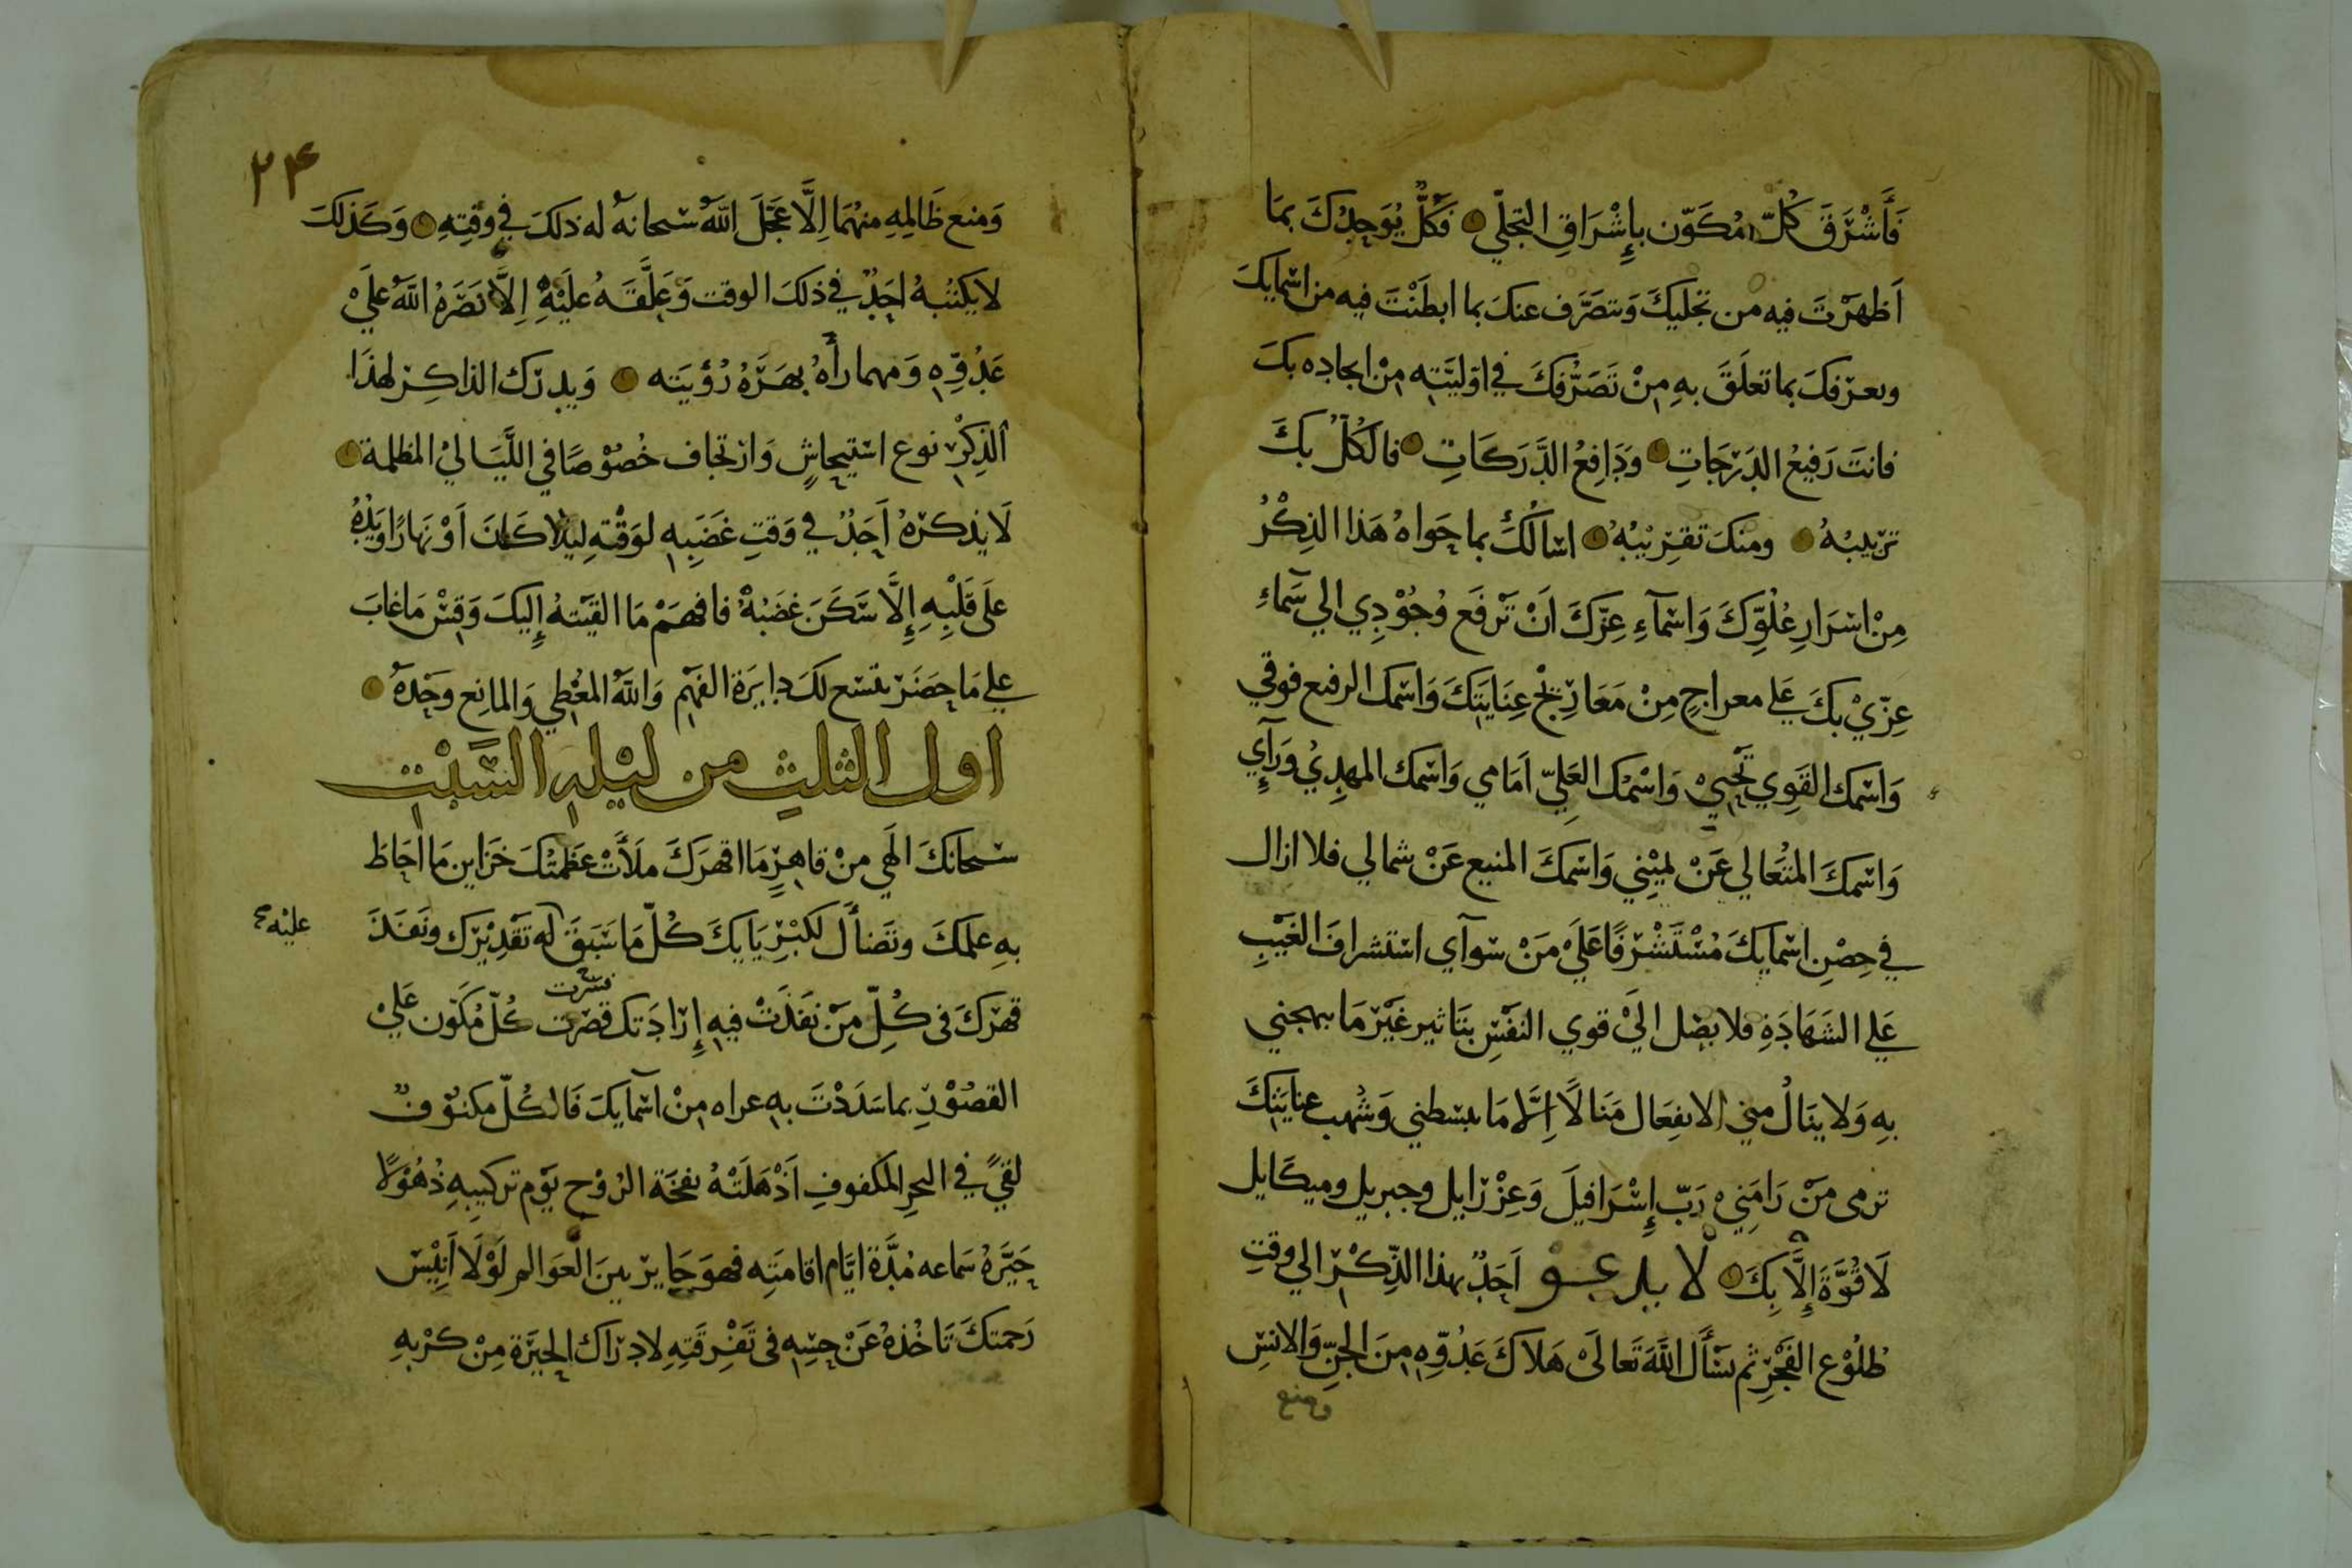 فَأَشْرَقَ كُلّ مُكَوّن بإِشْرَاقِ التجَلّي فَكُلٌّ يُوَحِدُكَ بمَا
اَظهَرْتَ فيه من تجَليكَ وَتتصَرَّف عنكَ بما ابطَنْتَ فيه من اسْمَايكَ
وبعرّفكَ بما تعلَقَ بهِ مِنْ تَصَرُّفكَ في اوّليَّتِه مِنْ ايجاده بكَ
فانتَ رَفيعُ الدَرَجَاتِ وَدَافِعُ الدَّرَكَاتِ فالكُلّ بكَ
ترتيبُهُ ومنكَ تقرِيْبُهُ اسْالُكَ بما حَواهُ هَذا الذِكْرُ
مِنْ اسْرَارِ عُلُوِّكَ وَاسْمآءِ عِزّكَ اَنْ تَرْفَع وُجُوْدِي الي سَمآءِ
عِزّيْ بكَ عَلي معراجٍ مِنْ مَعَارِيْجْ عِنَايَتِكَ وَاسْمك الرفيع فوقي
وَاسْمك القَوِي تَحْتِيْ وَاسْمُك العَلِيّ اَمَامي وَاسْمك المهدِيْ وَرَآيِ
وَاسْمكَ المتعَالي عَنْ يميْنِي وَاسْمكَ المنيع عَنْ شمالي فلا ازال
في حِصْنِ اسْمايكَ مُسْتَشْرفًا عَلَيْ مَنْ سْوآي اسْتشرافَ الغَيْبِ
عَلي الشَهَادَةِ فلا يصل اليَّ قوي النفْسِ بتَاثير غَيْرَ مَا يبهجني
بهِ وَلا ينَالُ مني الانفِعَال مَنَالًا اِلَّا مَا يبسْطني وَشُهب عنايَتِكَ
ترمى مَنْ رَامَنِيْ رَبّ إِسْرَافيلَ وَعِزْرَايل وجبريل وميكَايل
لَا قُوَّةَ إِلَّا بِكَ لا يدعو اَحَدٌ بهذا الذِّكْرِ الي وقتِ
طلُوْع الفَجْرِ ثم سْأَل اللَّهَ تَعَالَىْ هَلاكَ عَدُوِّهِ مِنَ الجنِّ وَالانسِ
ومنع
٢٤
وَمنع ظَالِمِهِ منهُمَا اِلَّا عَجّلَ اللَّهُ سْبحانهُ له ذلكَ في وقتِهِ وَكَذلكَ
لا يكتبهُ احَدٌ في ذلكَ الوقت وَعَلَّقَهُ علَيْهِ اِلَّا نَصَرَهُ اللَّهُ عليْ
عَدُوّهِ وَمهما رأهُ بهَرَهُ رُؤيَته وَيدرك الذاكِر لهذَا
الذِكْرِ نوع اسْتيحَاشٍ وَارتجاف خُصُوْصًا في اللَّيَاليْ المظلمة
لَا يذكرهُ اَحَدٌ في وَقتِ غَضَبِهِ لوَقْتِهِ ليلا كَانَ اَوْ نهَارًا وَيَدُهُ
علَى قَلْبِهِ إِلَّا سَكَنَ غضَبُهُ فافهَمْ مَا القَيْتهُ إِليكَ وَقِسْ مَا غابَ
علي مَا حضَرَ تتسع لكَ دايرَة الفهْمِ وَاللَّهُ المعْطِي وَالمانِع وحْدهُ
اول الثلث من ليلة السَّبْت
سْبحَانكَ الَهي منْ قاهِرٍ مَا اقهَرَكَ ملَأَتْ عَظمتكَ خَزاين مَا احَاطَ
بهِ علمكَ وتَضأَل لكبْرِيَايكَ كُلّ مَا سَبَقَ لَه تَقْدِيْرَك وَنَفَذَ
عليْه
قهْرَكَ فى كُلِّ مَنْ نفَذَتْ فيهِ إِرَادَتك قصَرت كُلّ مُكَوّن عَليْ
قسْرت
القصُوْرِ بما سَدَدْتَ بهِ عراه مِنْ اسْمَايكَ فَالكُلّ مكتوْفٌ
لقيً في البحرِ المكفوفِ اَذْهَلَتْهُ نفخَة الرُوْح يَوْم تركيبِهِ ذُهُوْلًا
حَيَّرَهُ سَماعه مُدَّة ايَّام اقامَتِه فهوَ حَاير بينَ العَوَالم لَوْلَا اَنِيْسَ
رَحمتكَ تَاخُذهُ عَنْ حِسِّهِ فى تَفْرِقَتِهِ لادْرَاك الحَيْرَة مِنْ كرْبِهِ